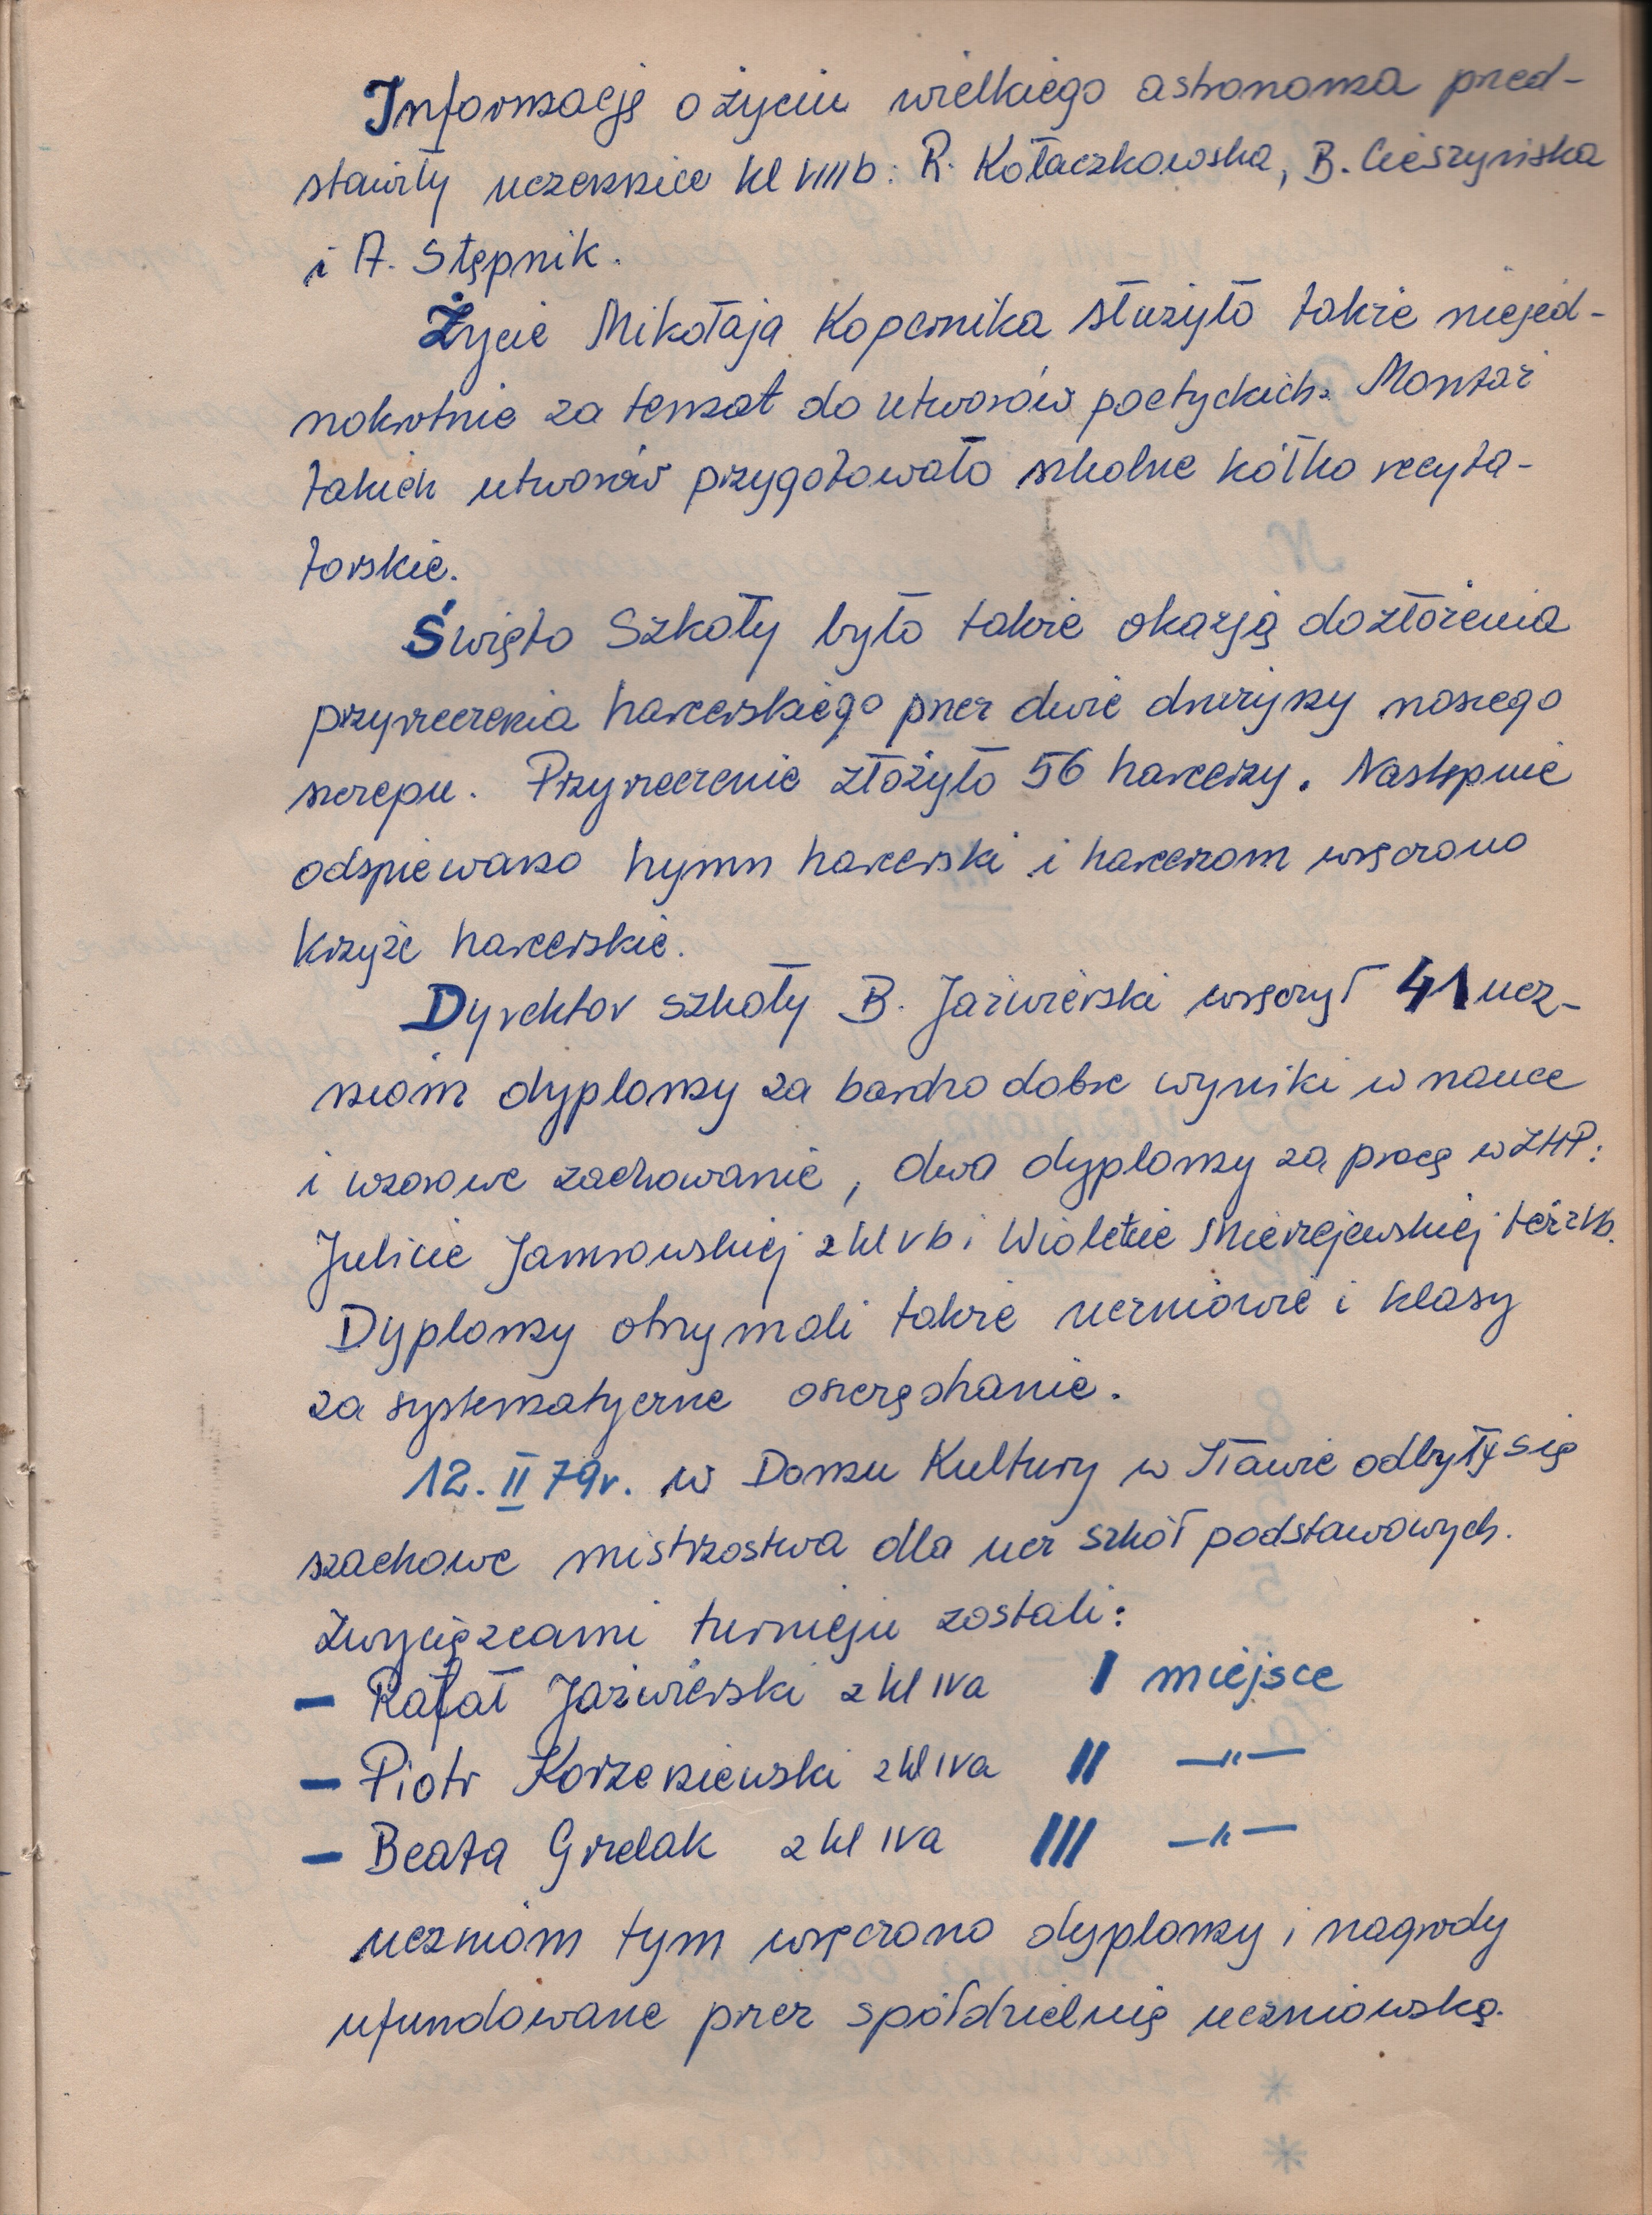 Informację o życiu wielkiego astronoma przed-
stawiły uczennice kl VIIIb: R. Kołaczkowska, B. Cieszyńska
i A. Stępnik.
Życie Mikołaja Kopernika służyło także niejed-
nokrotnie za temat do utworów poetyckich. Montaż
takich utworów przygotowało szkolne kółko recyta-
torskie.
Święto Szkoły było także okazją do złożenia
przyrzeczenia harcerskiego przez dwie drużyny naszego
szczepu. Przyrzeczenie złożyło 56 harcerzy. Następnie
odśpiewano hymn harcerski i harcerzom wręczono
krzyże harcerskie.
Dyrektor szkoły B. Jaźwierski wręczył 41 ucz-
niom dyplomy za bardzo dobre wyniki w nauce
i wzorowe zachowanie, dwa dyplomy za pracę w ZHP:
Julicie Jamrowskiej z kl Vb i Wioletcie Mierzejewskiej też z Vb.
Dyplomy otrzymali także uczniowie i klasy
za systematyczne oszczędzanie.
12. II 79r. w Domu Kultury w Iławie odbyły się
szachowe mistrzostwa dla ucz szkół podstawowych.
Zwycięzcami turnieju zostali:
– Rafał Jaźwierski z kl IVa I miejsce
– Piotr Korzeniewski z kl IVa II —"—
– Beata Grzelak z kl IVa III —"—
uczniom tym wręczono dyplomy i nagrody
ufundowane przez spółdzielnię uczniowską.